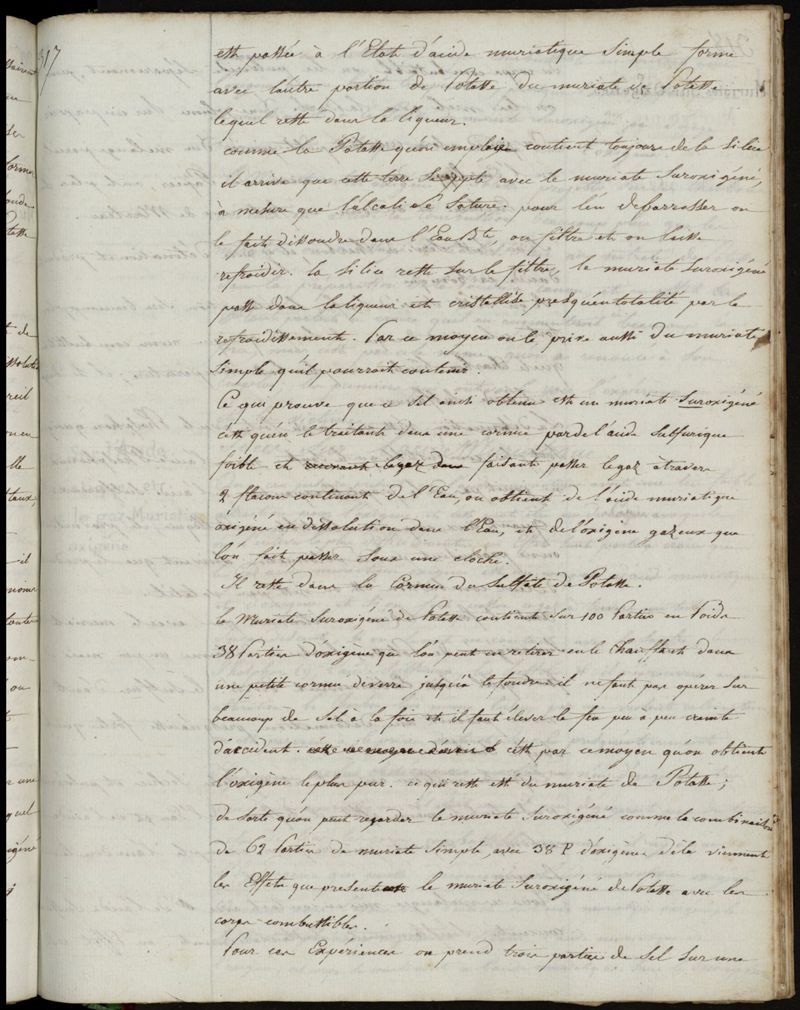 317
est passée à l'Etat d'acide muriatique simple forme
avec l'autre portion de Potasse du muriate de Potasse
lequel reste dans la liqueur.
comme la Potasse qu'on emploie contient toujours de la silice
il arrive que cette terre se avec le muriate suroxigéné,
à mesure que l'alcali se sature. pour l'en debarrasser on
le fait dissoudre dans l'Eau Bte, on filtre et on laisse
refroidir. la silice reste sur le filtre, le muriate suroxigéné
passe dans la liqueur et cristallise presqu'en totalité par le
refroidissement. Par ce moyen on le prive aussi du muriate
simple qu'il pourroit contenir.
Ce qui prouve que ce sel ainsi obtenu est un muriate suroxigéné
c'est qu'en le traitant dans une cornue par de l'acide sulfurique
foible et faisant passer le gaz à travers
2 flacons contenant de l'Eau, on obtient de l'acide muriatique
oxigéné en dissolution dans l'Eau, et de l'oxigène gazeux que
l'on fait passer sous une cloche.
Il reste dans la Cornue du Sulfate de Potasse.
Le Muriate Suroxigéné de Potasse contient sur 100 Parties en Poids
38 Parties d'oxigène que l'on peut en retirer en le chauffant dans
une petite cornue de verre jusqu'à le fondre il ne faut pas opérer sur
beaucoup de sel à la fois et il faut élever le feu peu à peu crainte
d'accident. c'est par ce moyen qu'on obtient
l'oxigène le plus pur. ce qui reste est du muriate de Potasse;
de sorte qu'on peut regarder le muriate suroxigéné comme la combinaison
de 62 Parties de muriate simple, avec 38 P d'oxigène delà viennent
les Effets que presente le muriate suroxigéné de Potasse avec les
corps combustibles.
Pour ces Expériences on prend trois parties de sel sur une